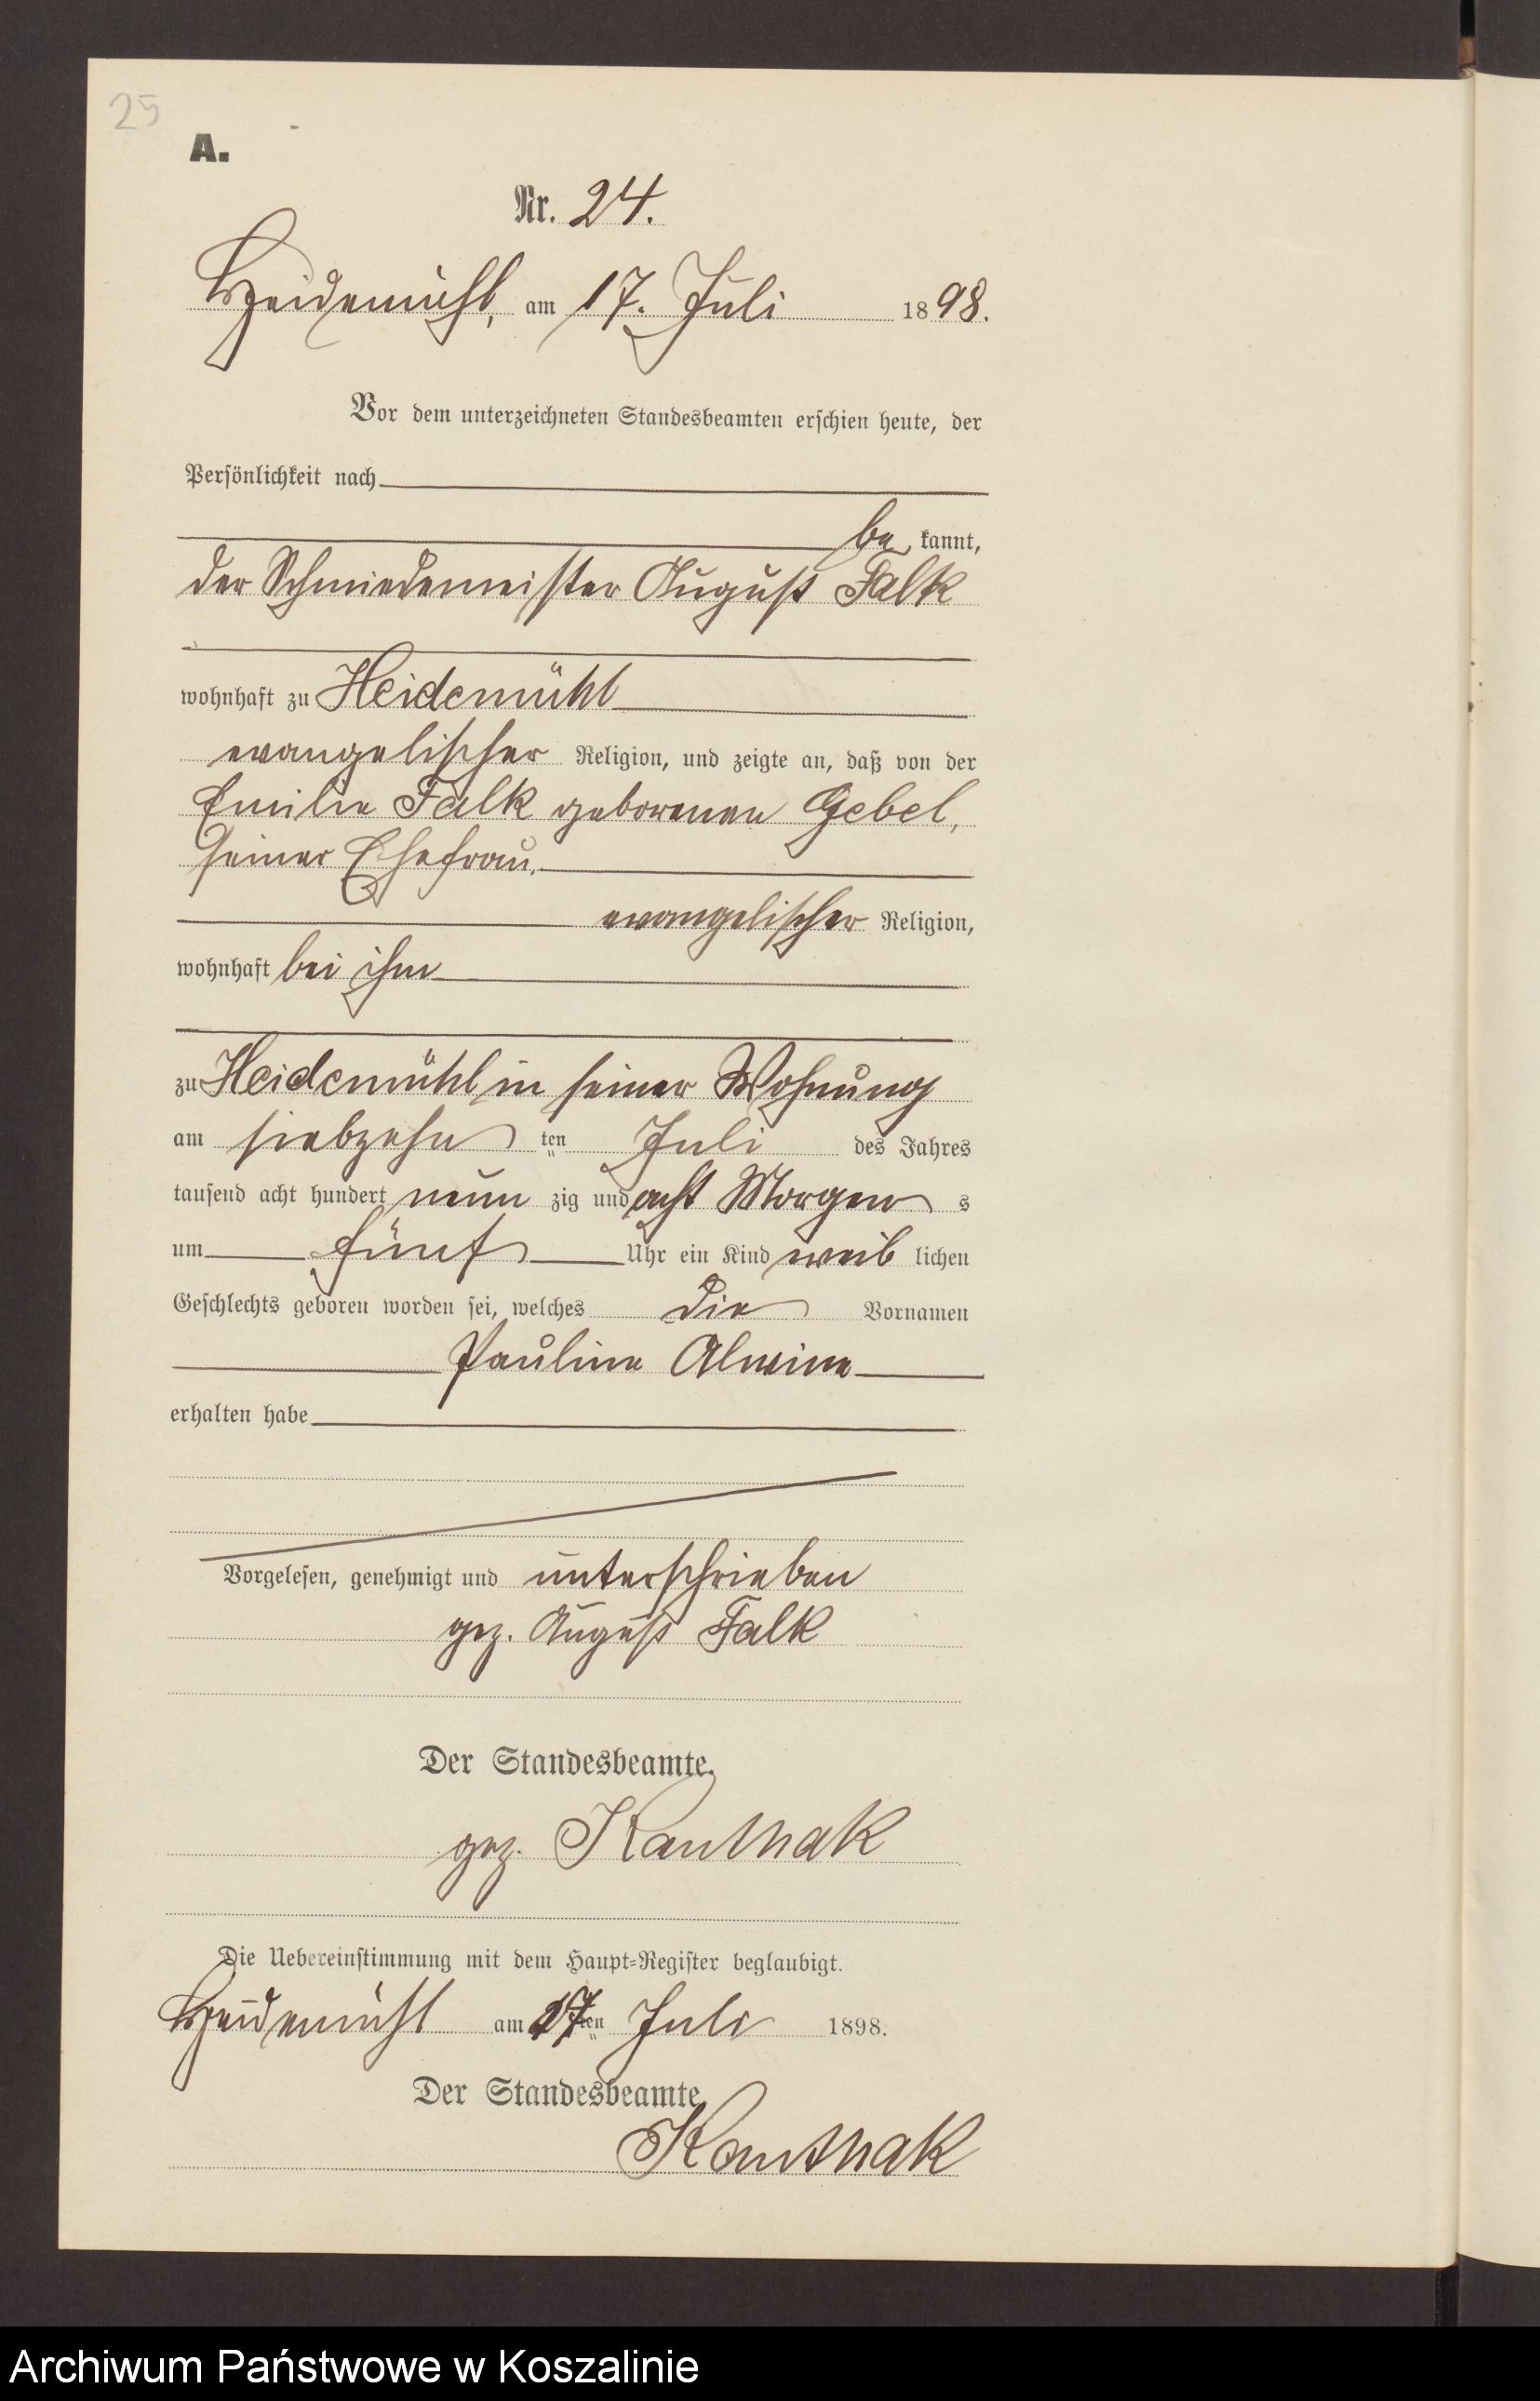 25
A.
Nr. 24.
Heidemühl, am 17. Juli 1898.
Vor dem unterzeichneten Standesbeamten erschien heute, der
Persönlichkeit nach
be kannt,
der Schmiedemeister August Falk
wohnhaft zu Heidemühl
evangelischer Religion, und zeigte an, daß von der
Emilie Falk geborenen Gebel,
seiner Ehefrau,
evangelischer Religion,
wohnhaft bei ihm
zu Heidemühl in seiner Wohnung
am siebzehn ten Juli des Jahres
tausend acht hundert neun zig und acht Morgen s
um fünf Uhr ein Kind weib lichen
Geschlechts geboren worden sei, welches die Vornamen
Pauline Alwine
erhalten habe
Vorgelesen, genehmigt und unterschrieben
gez. August Falk
Der Standesbeamte.
gez. Kanthak
Die Uebereinstimmung mit dem Haupt-Register beglaubigt.
Heidemühl am 17ten Juli 1898.
Der Standesbeamte
Kanthak
Archiwum Państwowe w Koszalinie